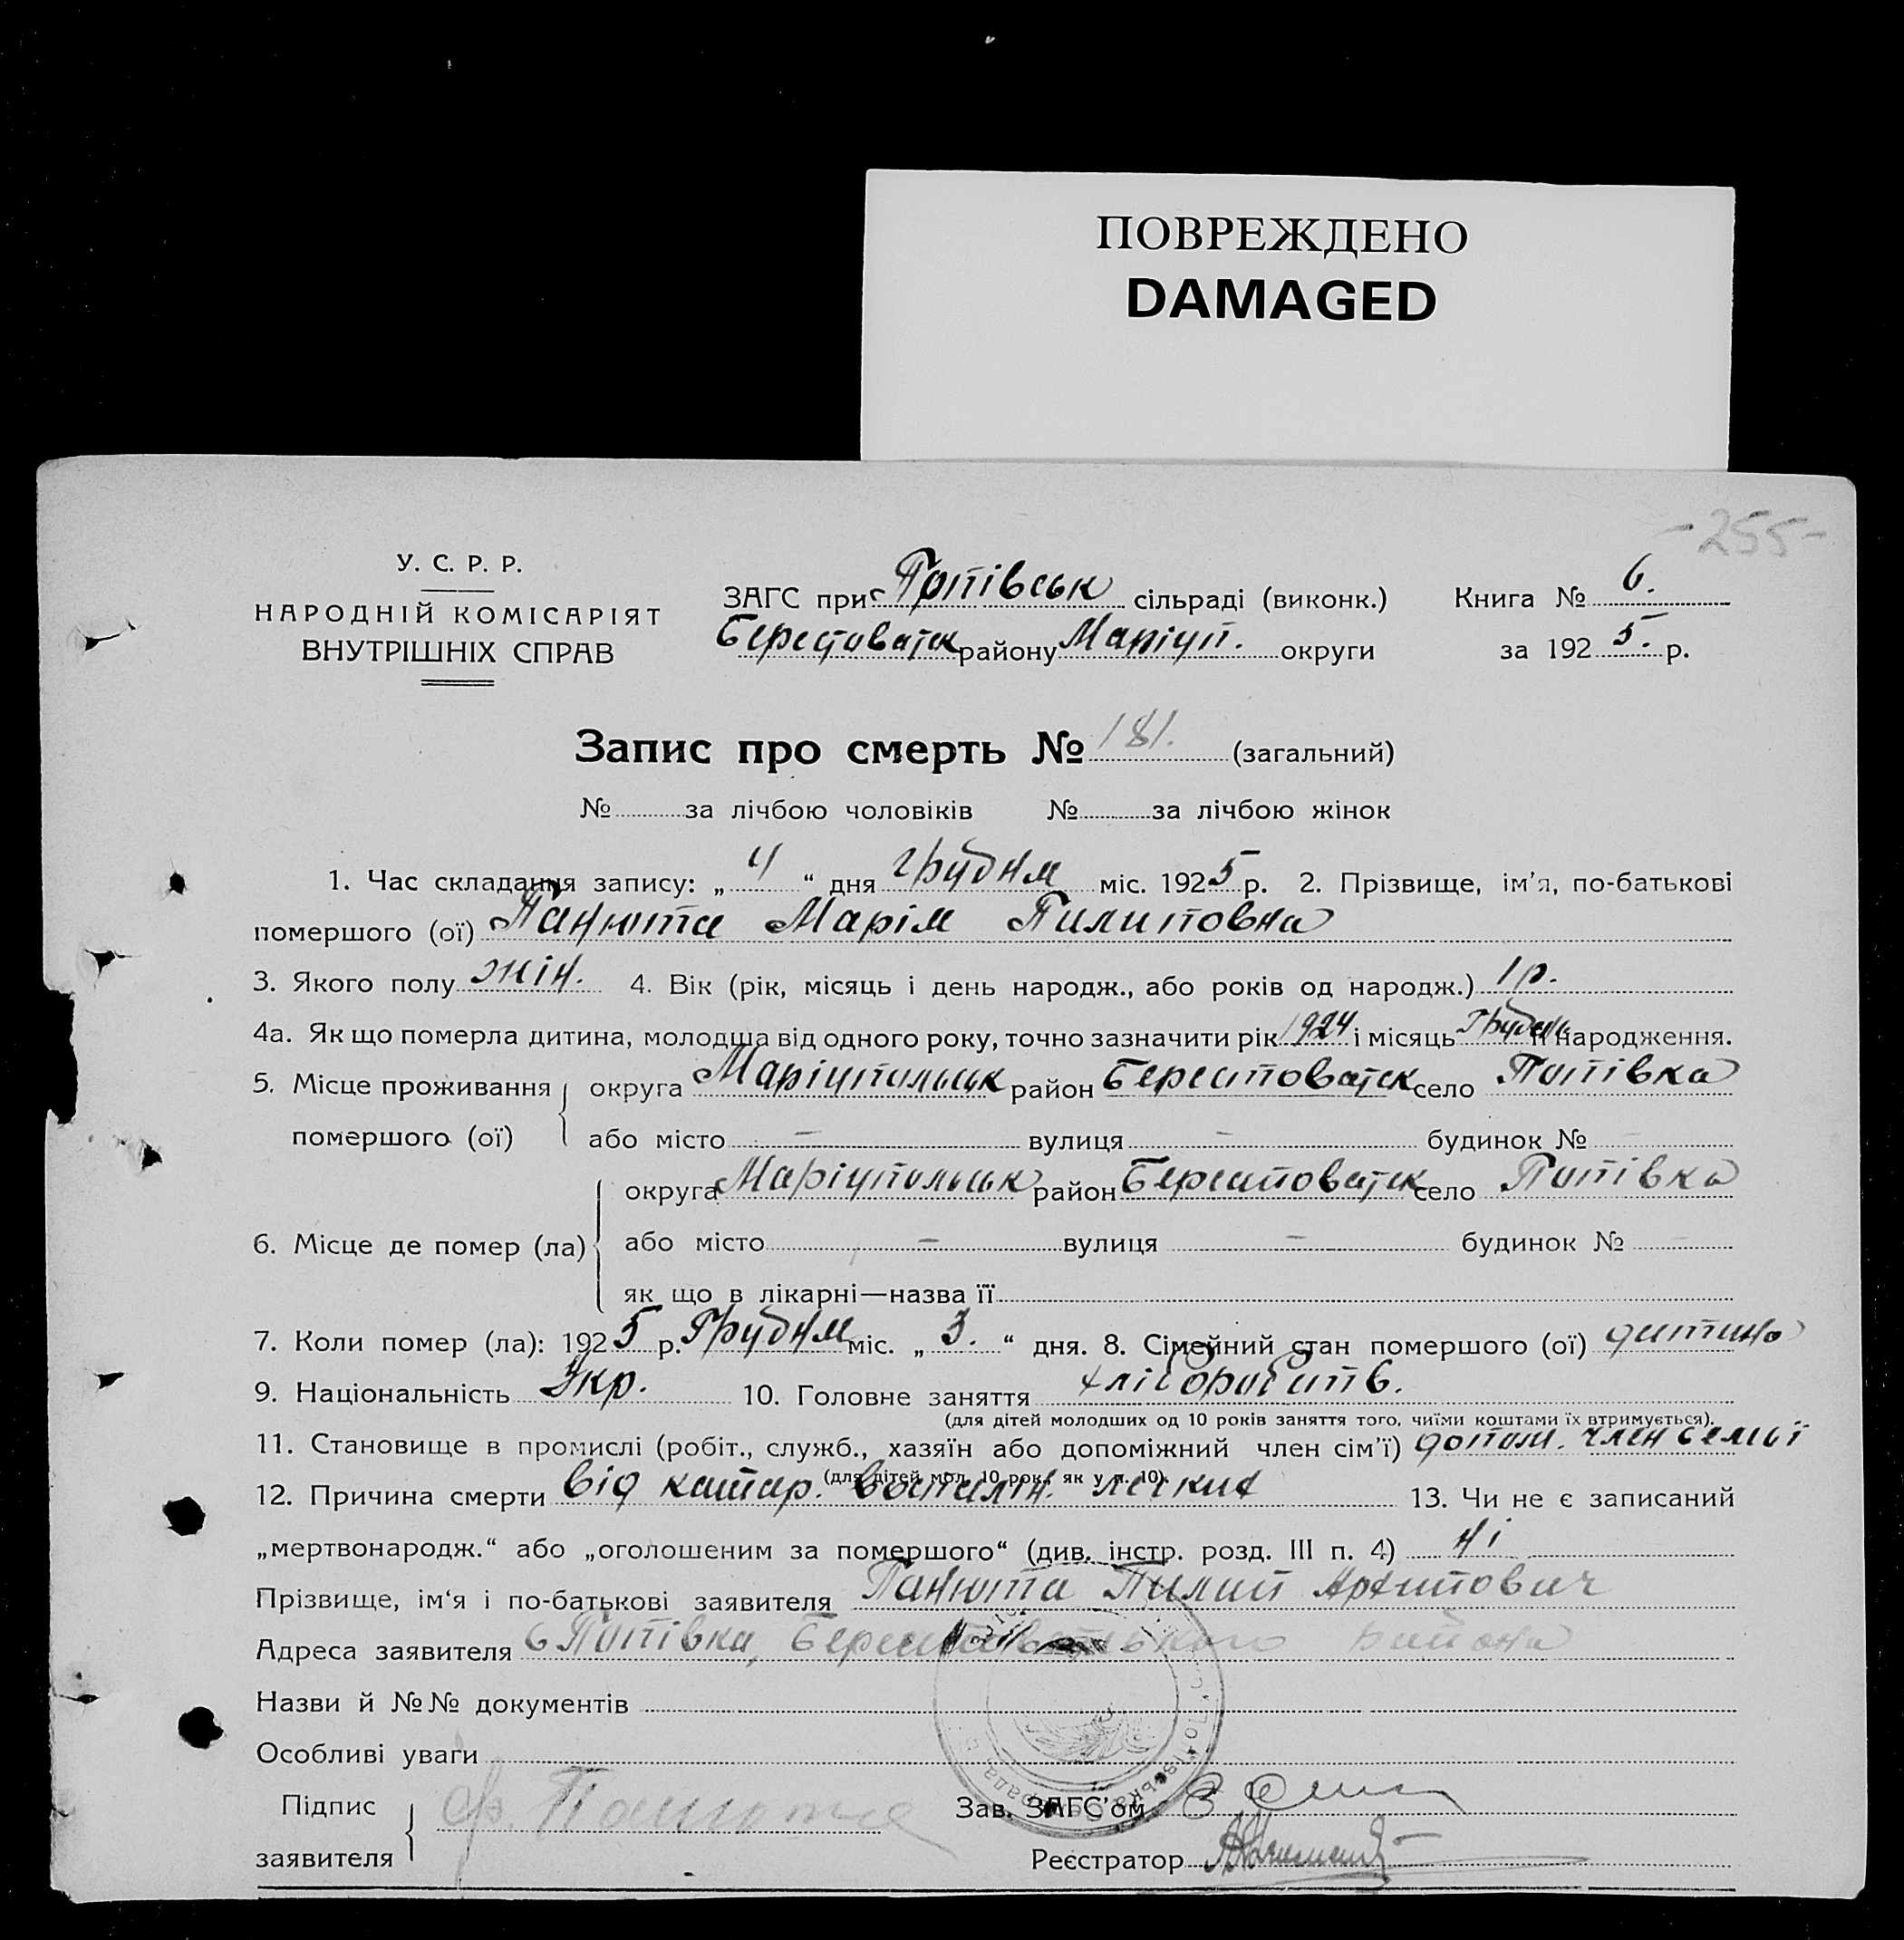 ПОВРЕЖДЕНО
DAMAGED
-255-
У. С. Р. Р.
НАРОДНІЙ КОМІСАРІЯТ
ВНУТРІШНІХ СПРАВ
ЗАГС при Попівськ сільраді (виконк.)
Берестоватск району Маріуп. округи
Книга № 6.
за 1925. р.
Запис про смерть № 181. (загальний)
№ за лічбою чоловіків № за лічбою жінок
1. Час складання запису: „ 4 “ дня грудня міс. 1925 р. 2. Прізвище, ім’я, по-батькові
помершого (ої) Панюта Марія Пилиповна
3. Якого полу жін. 4. Вік (рік, місяць і день народж., або років од народж.) 1 р.
4а. Як що померла дитина, молодша від одного року, точно зазначити рік 1924 і місяць Грудень її народження.
5. Місце проживання округа Маріупольськ район Берестоватск село Попівка
помершого (ої) або місто — вулиця — будинок № —
округа Маріупольськ район Берестоватск село Попівка
6. Місце де помер (ла) або місто — вулиця — будинок № —
як що в лікарні—назва її
7. Коли помер (ла): 1925 р. Грудня міс. „ 3. “ дня. 8. Сімейний стан помершого (ої) дитина
9. Національність Укр. 10. Головне заняття хлібороб
(для дітей молодших од 10 років заняття того, чиїми коштами їх втримується).
11. Становище в промислі (робіт., служб., хазяїн або допоміжний член сім’ї) допом. член семьї
(для дітей мол. 10 рок., як у п. 10).
12. Причина смерти від катар. воспалін. легких 13. Чи не є записаний
„мертвонародж.“ або „оголошеним за помершого“ (див. інстр. розд. III п. 4) ні
Прізвище, ім‘я і по-батькові заявителя Панюта Пилип Архипович
Адреса заявителя с Попівка, Берестоватського района
Назви й №№ документів
Особливі уваги
Підпис
заявителя
ф. Панюта
Зав. ЗАГС’ом
Реєстратор